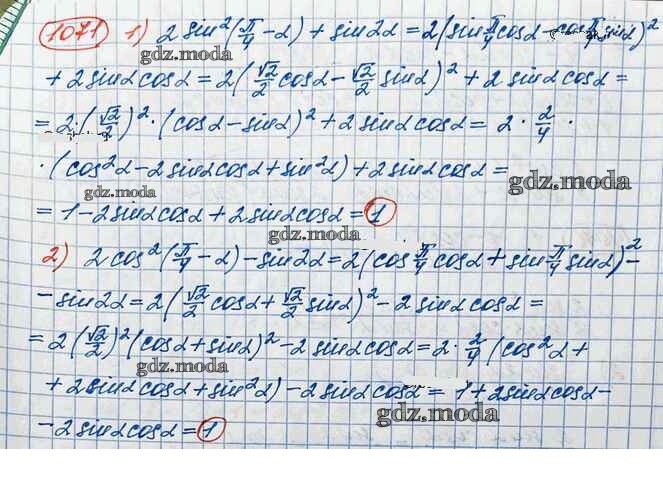 1071 1) 2 sin²(π/4 - α) + sin2α = 2(sin π/4 cosα - cos π/4 sinα)²
gdz.moda
+ 2 sinα cosα = 2(√2/2 cosα - √2/2 sinα)² + 2 sinα cosα =
gdz.moda
= 2·(√2/2)²·(cosα - sinα)² + 2 sinα cosα = 2 · 2/4 ·
·(cos²α - 2 sinα cosα + sin²α) + 2 sinα cosα =
gdz.moda
gdz.moda
= 1 - 2 sinα cosα + 2 sinα cosα = 1
gdz.moda
2) 2 cos²(π/4 - α) - sin2α = 2(cos π/4 cosα + sin π/4 sinα)² -
- sin2α = 2(√2/2 cosα + √2/2 sinα)² - 2 sinα cosα =
gdz.moda
= 2(√2/2)²(cosα + sinα)² - 2 sinα cosα = 2 · 2/4 (cos²α +
gdz.moda
+ 2 sinα cosα + sin²α) - 2 sinα cosα = 1 + 2 sinα cosα -
gdz.moda
- 2 sinα cosα = 1